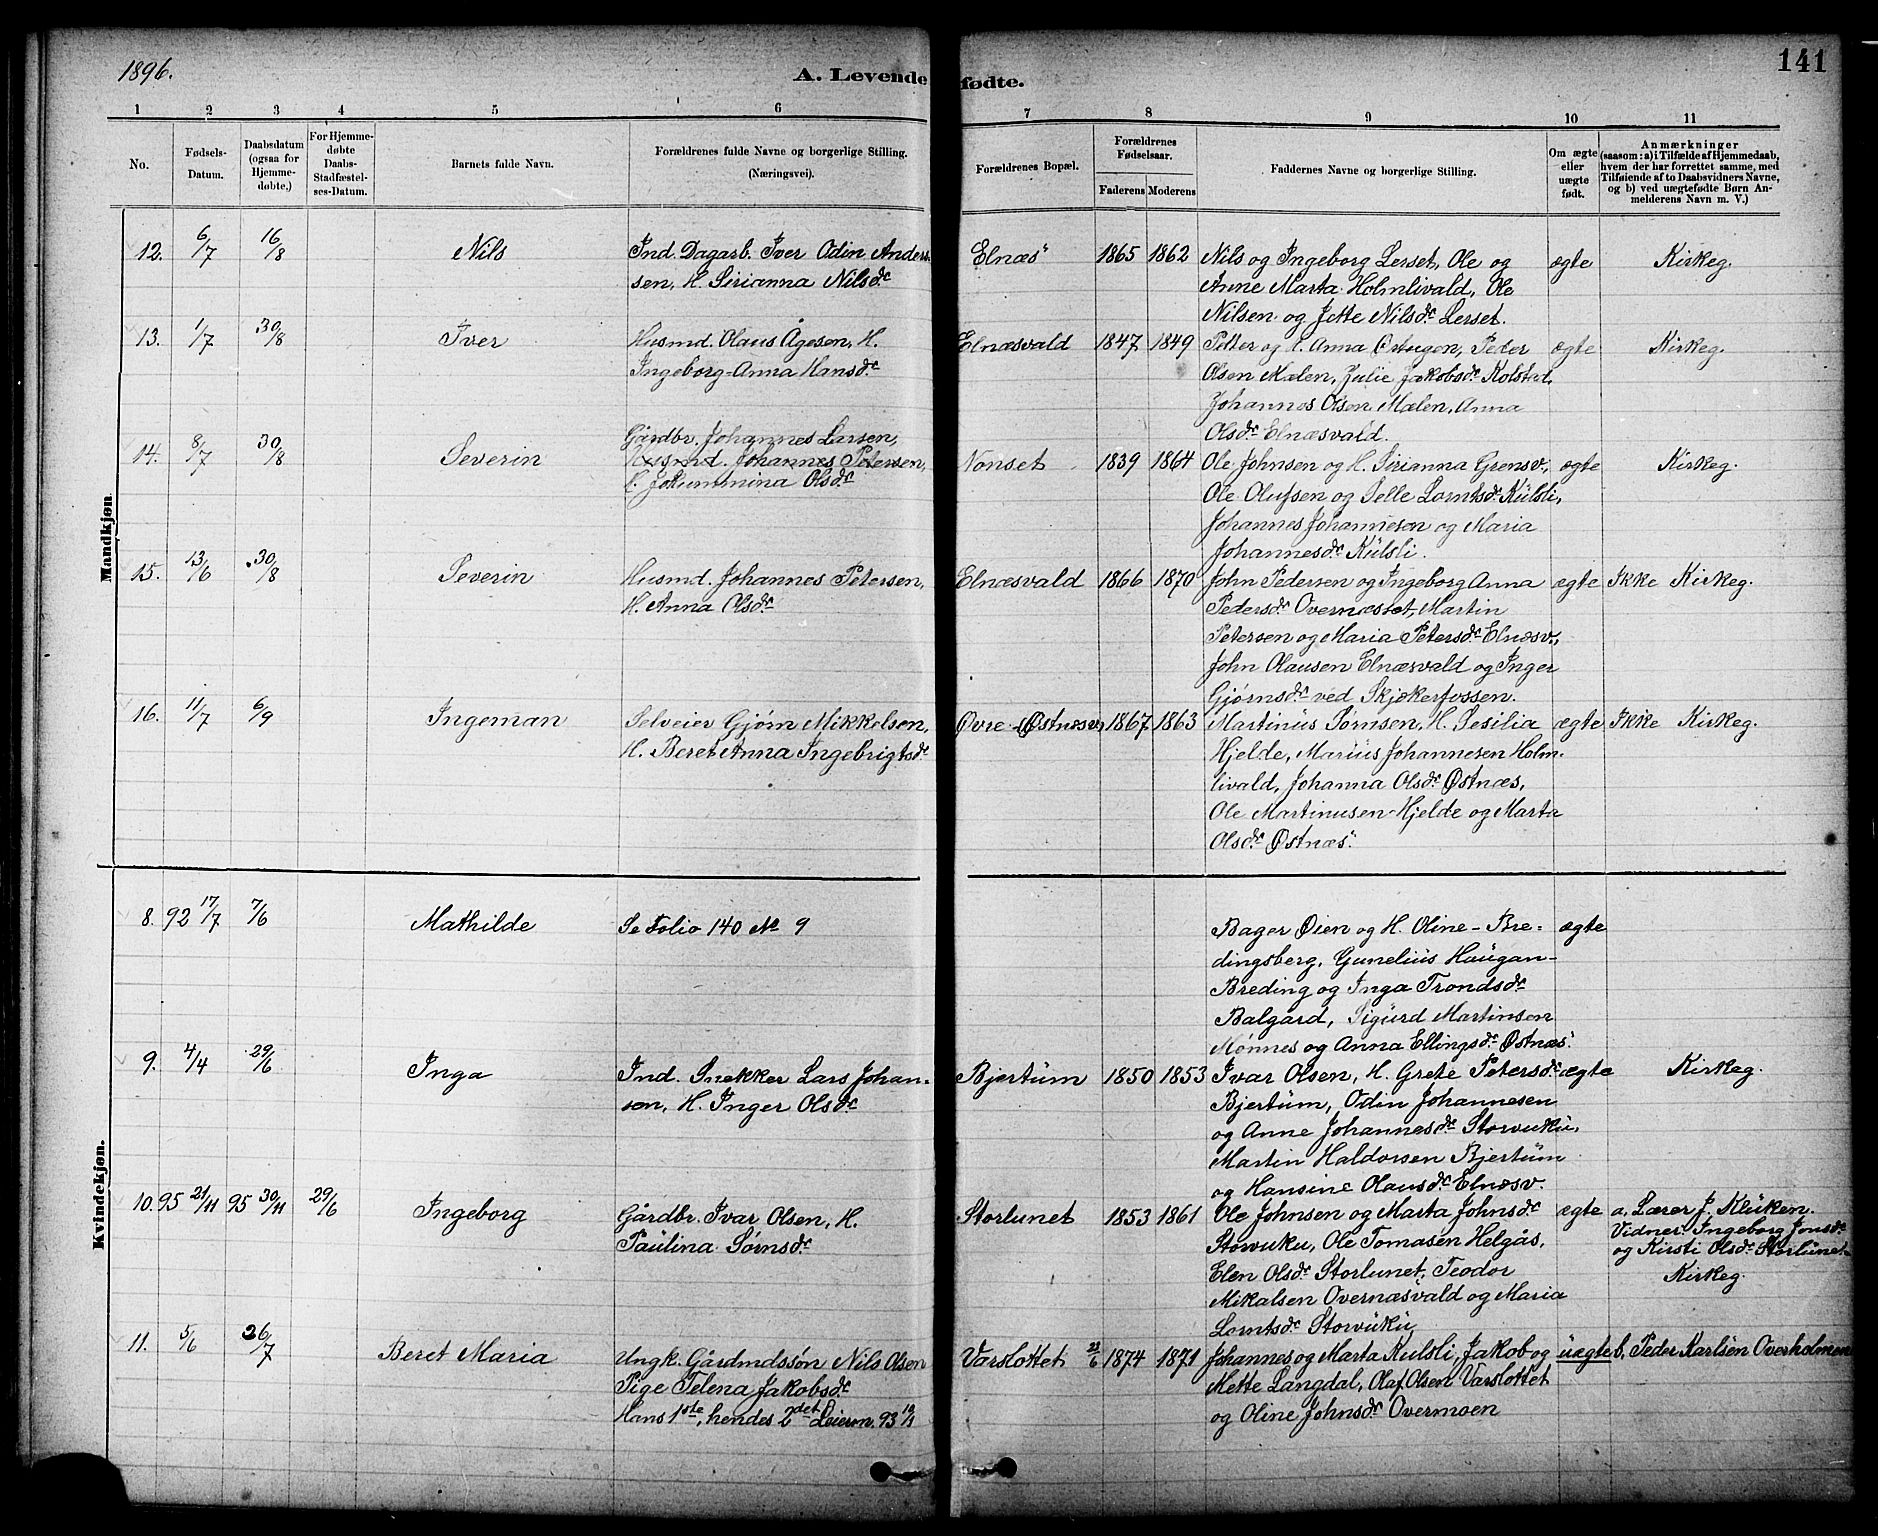 1896.
A. Levende fødte.
141
1 2 3 4 5 6 7 8 9 10 11
No.
Fødsels-
Datum.
Daabsdatum
(ogsaa for
Hjemme-
døbte,)
For Hjemme-
døbte
Daabs-
Stadfæstel-
ses-Datum.
Barnets fulde Navn.
Forældrenes fulde Navne og borgerlige Stilling.
(Næringsvei).
Forældrenes Bopæl.
Forældrenes
Fødselsaar.
Faderens Moderens
Faddernes Navne og borgerlige Stilling.
Om ægte
eller
uægte
født.
Anmærkninger
(saasom: a) i Tilfælde af Hjemmedaab,
hvem der har forrettet samme, med
Tilføiende af to Daabsvidners Navne,
og b) ved uægtefødte Børn An-
melderens Navn m. V.)
Mandkjøn.
12. 6/7 16/8 Nils Ind. Dagarb. Iver Odin Anders- Elnæs 1865 1862 Nils og Ingeborg Lerset, Ole og ægte Kirkeg.
sen, H. Sirianna Nilsdr Anne Marta Holmlivald, Ole
Nilsen og Jette Nilsdr Lerset.
13. 1/7 30/8 Iver Husmd. Olaus Ågesen, H. Elnæsvald 1847 1849 Petter og H. Anna Østugen, Peder ægte Kirkeg.
Ingeborg-Anna Hansdr Olsen Mælen, Julie Jakobsdr Kolstad,
Johannes Olsen Mælen, Anna
Olsdr Elnæsvald.
Gårdbr. Johannes Larsen,
14. 8/7 30/8 Severin Husmd. Johannes Petersen, Nonset 1839 1864 Ole Johnsen og H. Sirianna Grensv., ægte Kirkeg.
H. Jokummina Olsdr Ole Olufsen og Selle Lorntsdr Külsli,
Johannes Johannesen og Maria
Johannesdr Külsli.
15. 13/6 30/8 Severin Husmd. Johannes Petersen, Elnæsvald 1866 1870 John Pedersen og Ingeborg Anna ægte Ikke Kirkeg.
H. Anna Olsdr Pedersdr Overnæsset, Martin
Petersen og Maria Petersdr Elnæsv.,
John Olausen Elnæsvald og Inger
Gjørnsdr ved Skjækerfossen.
16. 11/7 6/9 Ingeman Selveier Gjørn Mikkelsen, Øvre-Østnæsv. 1867 1863 Martinus Sørnsen, H. Sesilia ægte Ikke Kirkeg.
H. Beret Anna Ingebrigtsdr Hjelde, Marius Johannesen Holm-
livald, Johanna Olsdr Østnæs,
Ole Martinusen Hjelde og Marta
Olsdr Østnæs.
Kvindekjøn.
8. 92 17/7 7/6 Mathilde Se Folio 140 No 9 Bager Øien og H. Oline-Bre- ægte
dingsberg, Gunelius Haugan-
Breding og Inga Trondsdr
Balgård, Sigurd Martinsen
Mønnes og Anna Ellingsdr Østnæs.
9. 4/4 29/6 Inga Ind. Snekker Lars Johan- Bjertüm 1850 1853 Ivar Olsen, H. Grete Petersdr ægte Kirkeg.
sen, H. Inger Olsdr Bjertüm, Odin Johannesen
og Anne Johannesdr Storvuku,
Martin Haldorsen Bjertüm
og Hansine Olausdr Elnæsv.
10. 95 21/11 95 30/11 29/6 Ingeborg Gårdbr. Ivar Olsen, H. Storlunet 1853 1861 Ole Johnsen og Marta Johnsdr ægte a. Lærer J. Klüken.
Paulina Sørnsdr Storvuku, Ole Tomasen Helgås, Vidner: Ingeborg Jonsdr
Elen Olsdr Storlunet, Teodor og Kirsti Olsdr Storlunet
Mikalsen Overnæsvald og Maria Kirkeg.
Lorntsdr Storvuku
11. 5/6 26/7 Beret Maria Ungk. Gårdmdssøn Nils Olsen Varslottet 22/6 1874 1871 Johannes og Marta Kulsli, Jakob og uægte b. Peder Karlsen Overholmen
Pige Telena Jakobsdr Mette Langdal, Olaf Olsen Varslottet
Hans 1ste, hendes 2det Leierm. 93 og Oline Johnsdr Overmoen